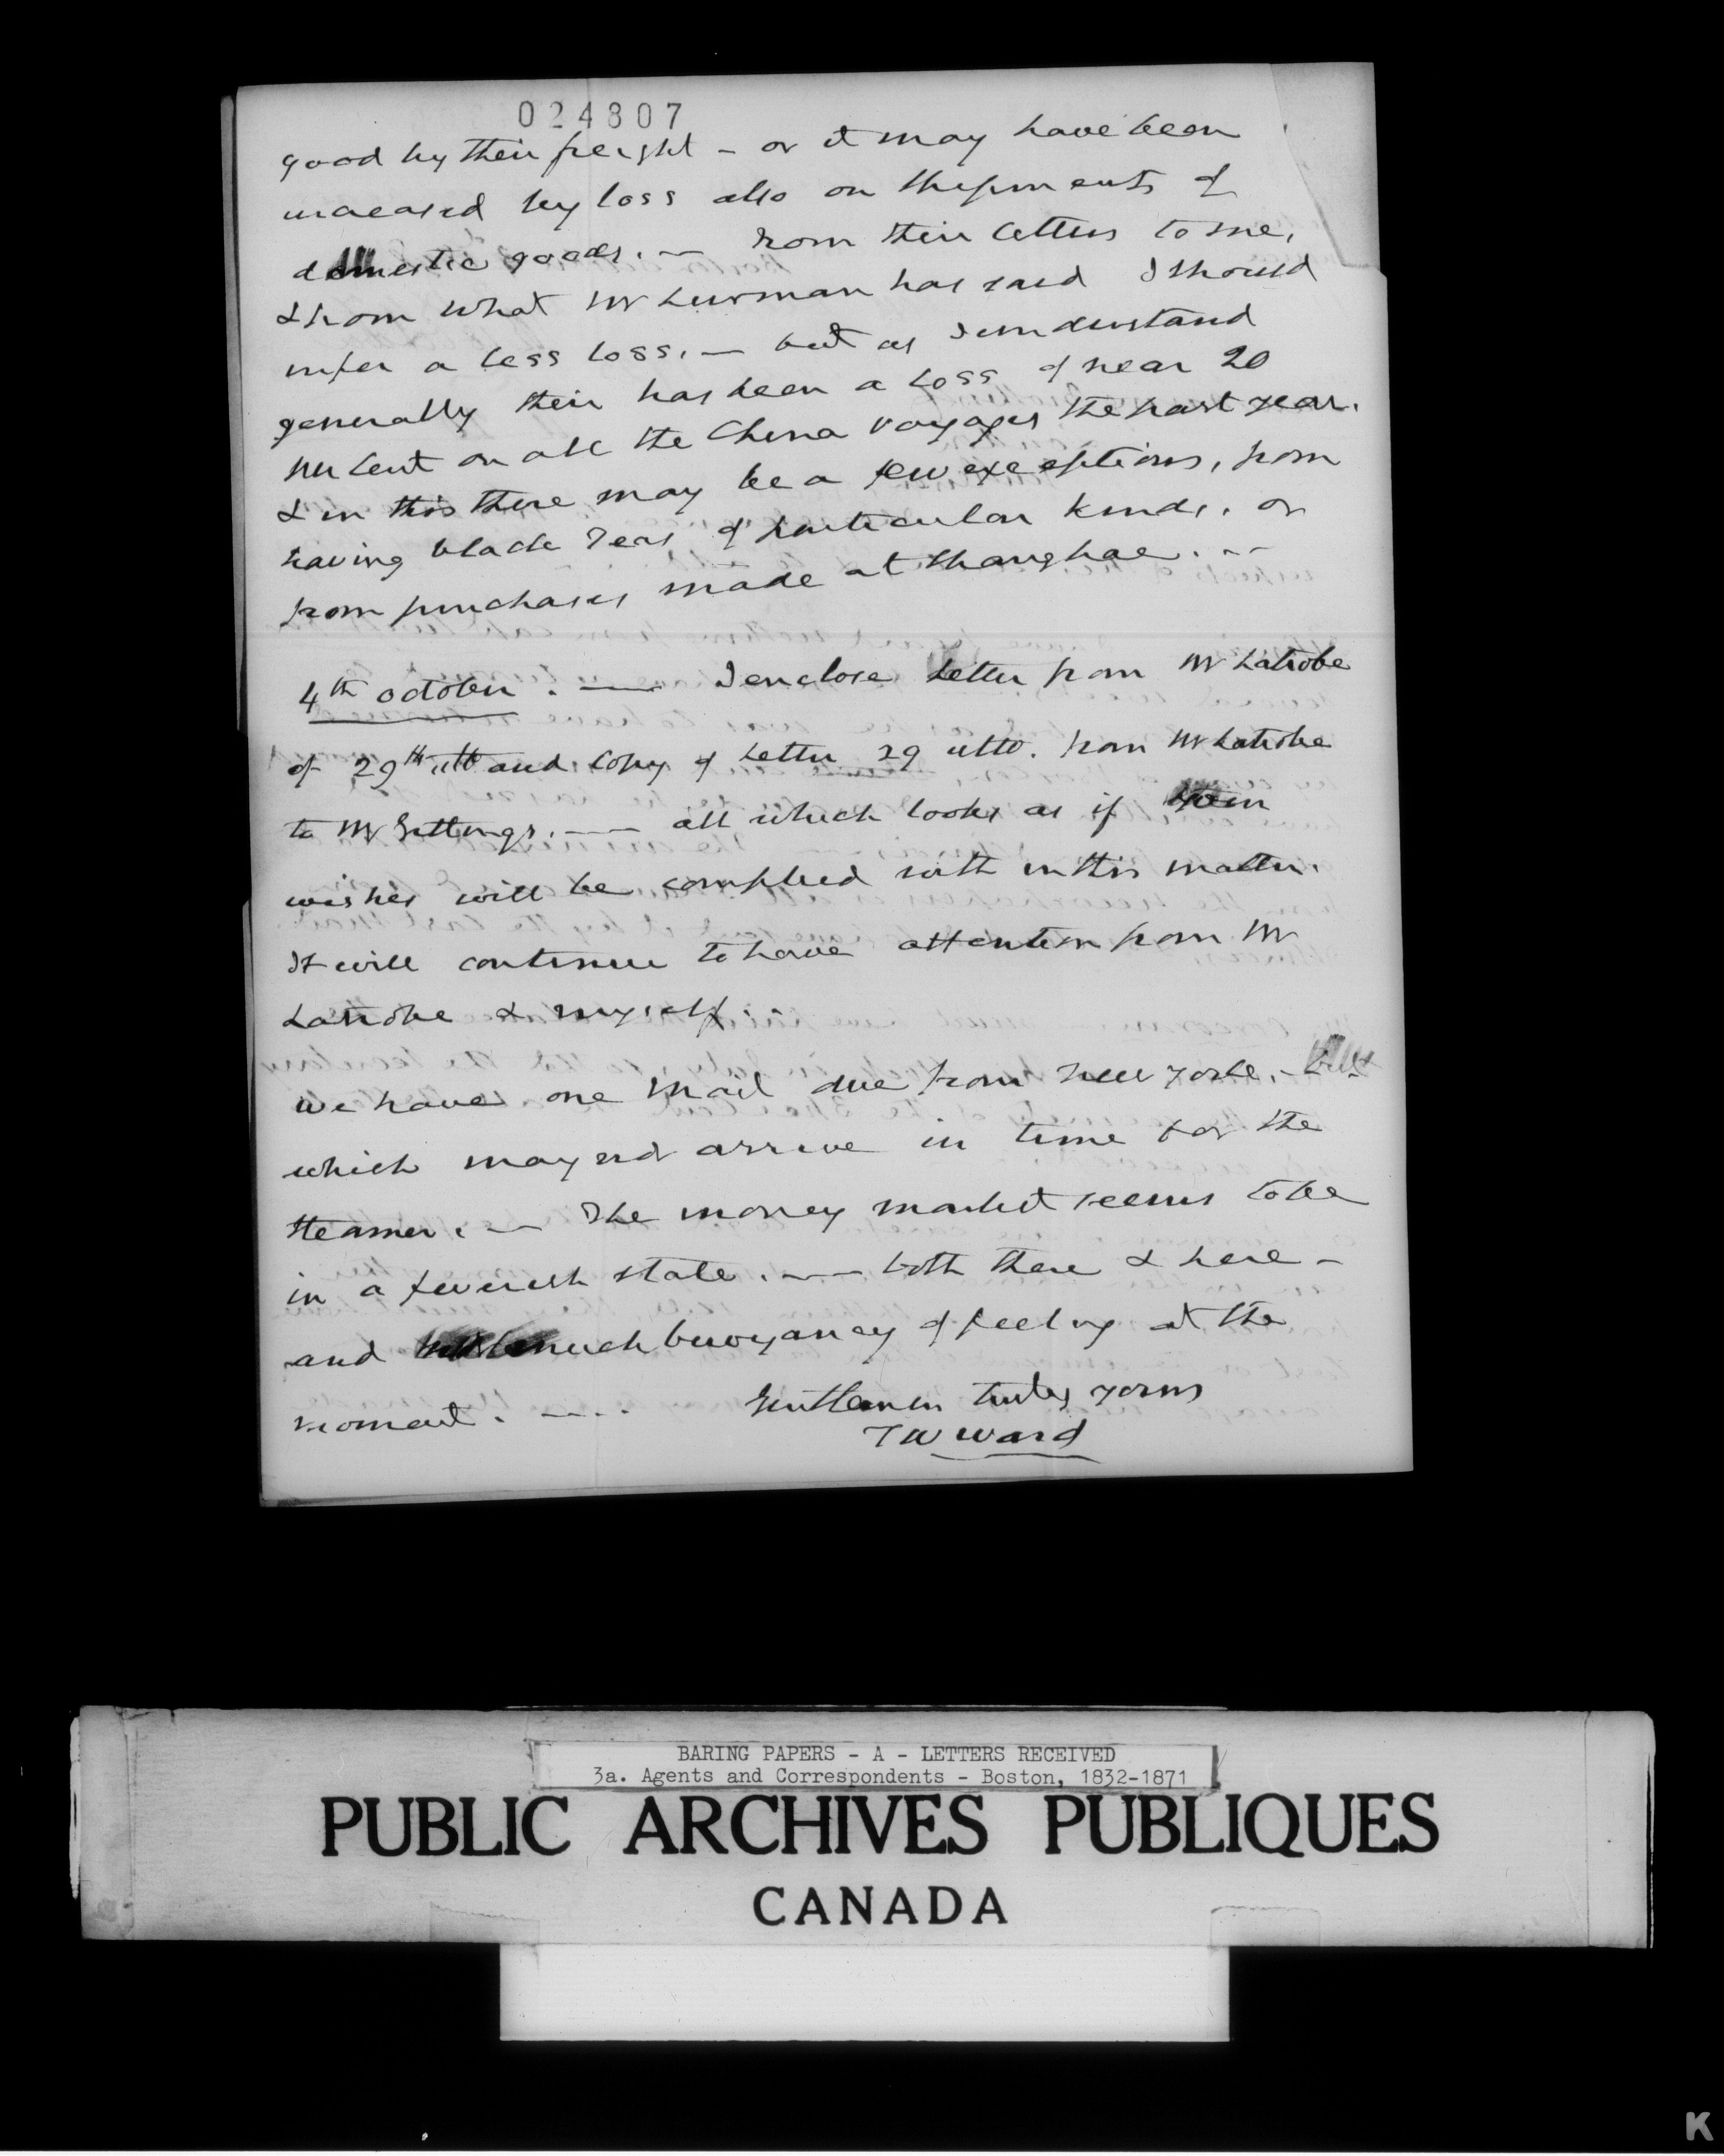 024807
good by their freight - or it may have been
increased by loss also on shipments of
domestic goods. — From their letters to me,
& from what Mr Lurman has said I should
infer a less loss. — but as I understand
generally their has been a loss of near 20
per Cent on all the China voyages the past year.
& in this there may be a few exceptions, from
having black Teas of particular kinds, or
from purchases made at Shanghae. --
4th October. — I enclose Letter from Mr Latrobe
of 29th ulto and Copy of Letter 29 ulto. from Mr Latrobe
to Mr Gittings. — all which looks as if your
wishes will be complied with in this matter.
It will continue to have attention from Mr
Latrobe & myself.
we have one Mail due from New York, -
which may not arrive in time for the
Steamer. — The money market seems to be
in a feverish state. — both there & here -
and much buoyancy of feeling at the
moment. - - - -
Gentlemen truly yours
T W Ward
BARING PAPERS - A - LETTERS RECEIVED
3a. Agents and Correspondents - Boston, 1832-1871
PUBLIC ARCHIVES PUBLIQUES
CANADA
K